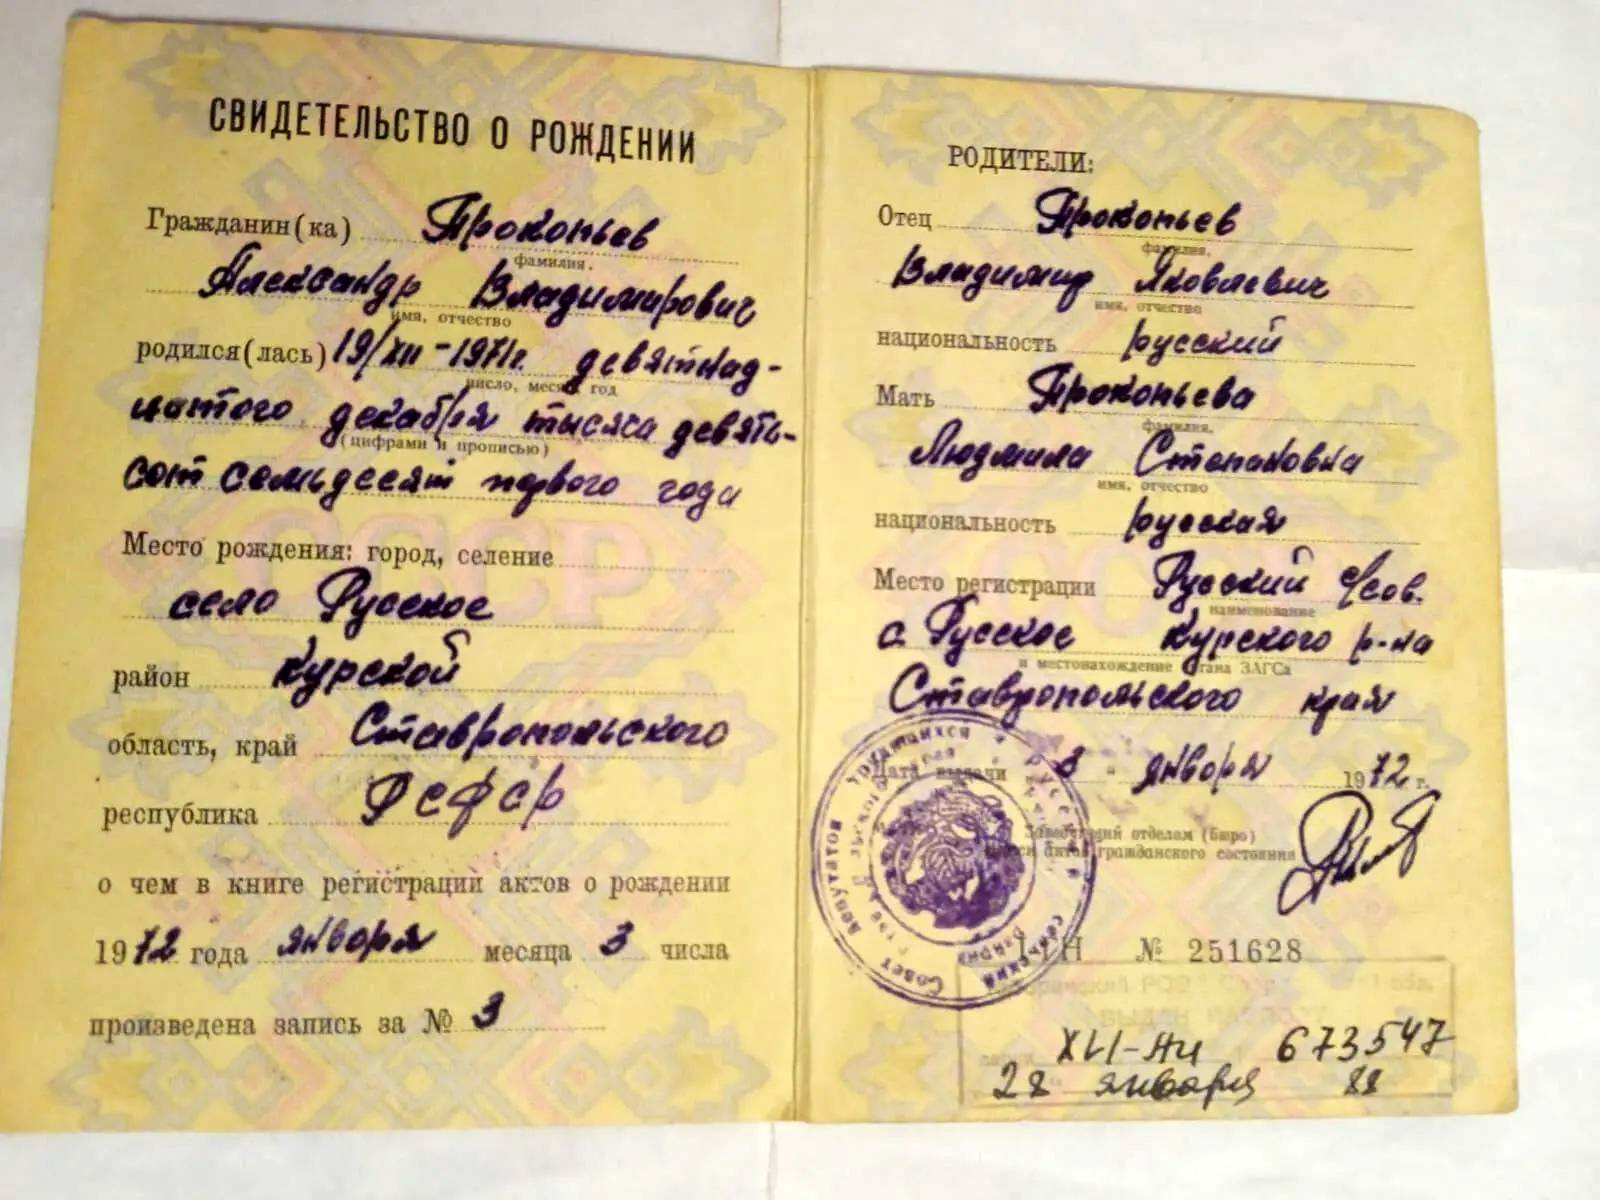 СВИДЕТЕЛЬСТВО О РОЖДЕНИИ
Гражданин(ка) Прокопьев
фамилия,
Александр Владимирович
имя, отчество
родился(лась) 19/XII-1971г. девятнад-
число, месяц, год
цатого декабря тысяча девять-
(цифрами и прописью)
сот семьдесят первого года
Место рождения: город, селение
село Русское
район Курской
область, край Ставропольского
республика РСФСР
о чем в книге регистрации актов о рождении
1972 года января месяца 3 числа
произведена запись за № 3
РОДИТЕЛИ:
Отец Прокопьев
фамилия,
Владимир Яковлевич
имя, отчество
национальность русский
Мать Прокопьева
фамилия,
Людмила Степановна
имя, отчество
национальность русская
Место регистрации Русский с/сов.
наименование
с. Русское Курского р-на
и местонахождение органа ЗАГСа
Ставропольского края
Дата выдачи 3 января 1972 г.
Заведующий отделом (бюро)
записи актов гражданского состояния
№ 251628
ВЫДАН ПАСПОРТ
673547
28 января 88